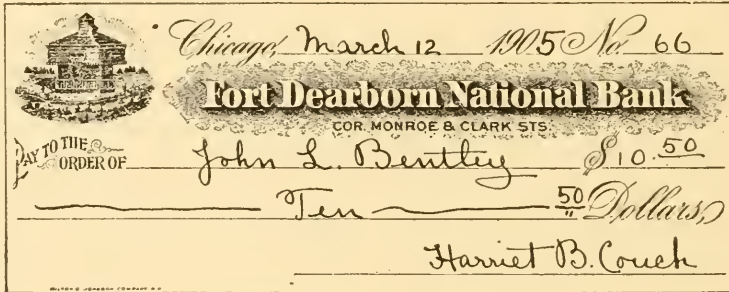 Chicago, March 12 1905 No. 66
Fort Dearborn National Bank
COR. MONROE & CLARK STS.
PAY TO THE
ORDER OF John L. Bentley $10.50
Ten 50/" Dollars,
Harriet B. Couch